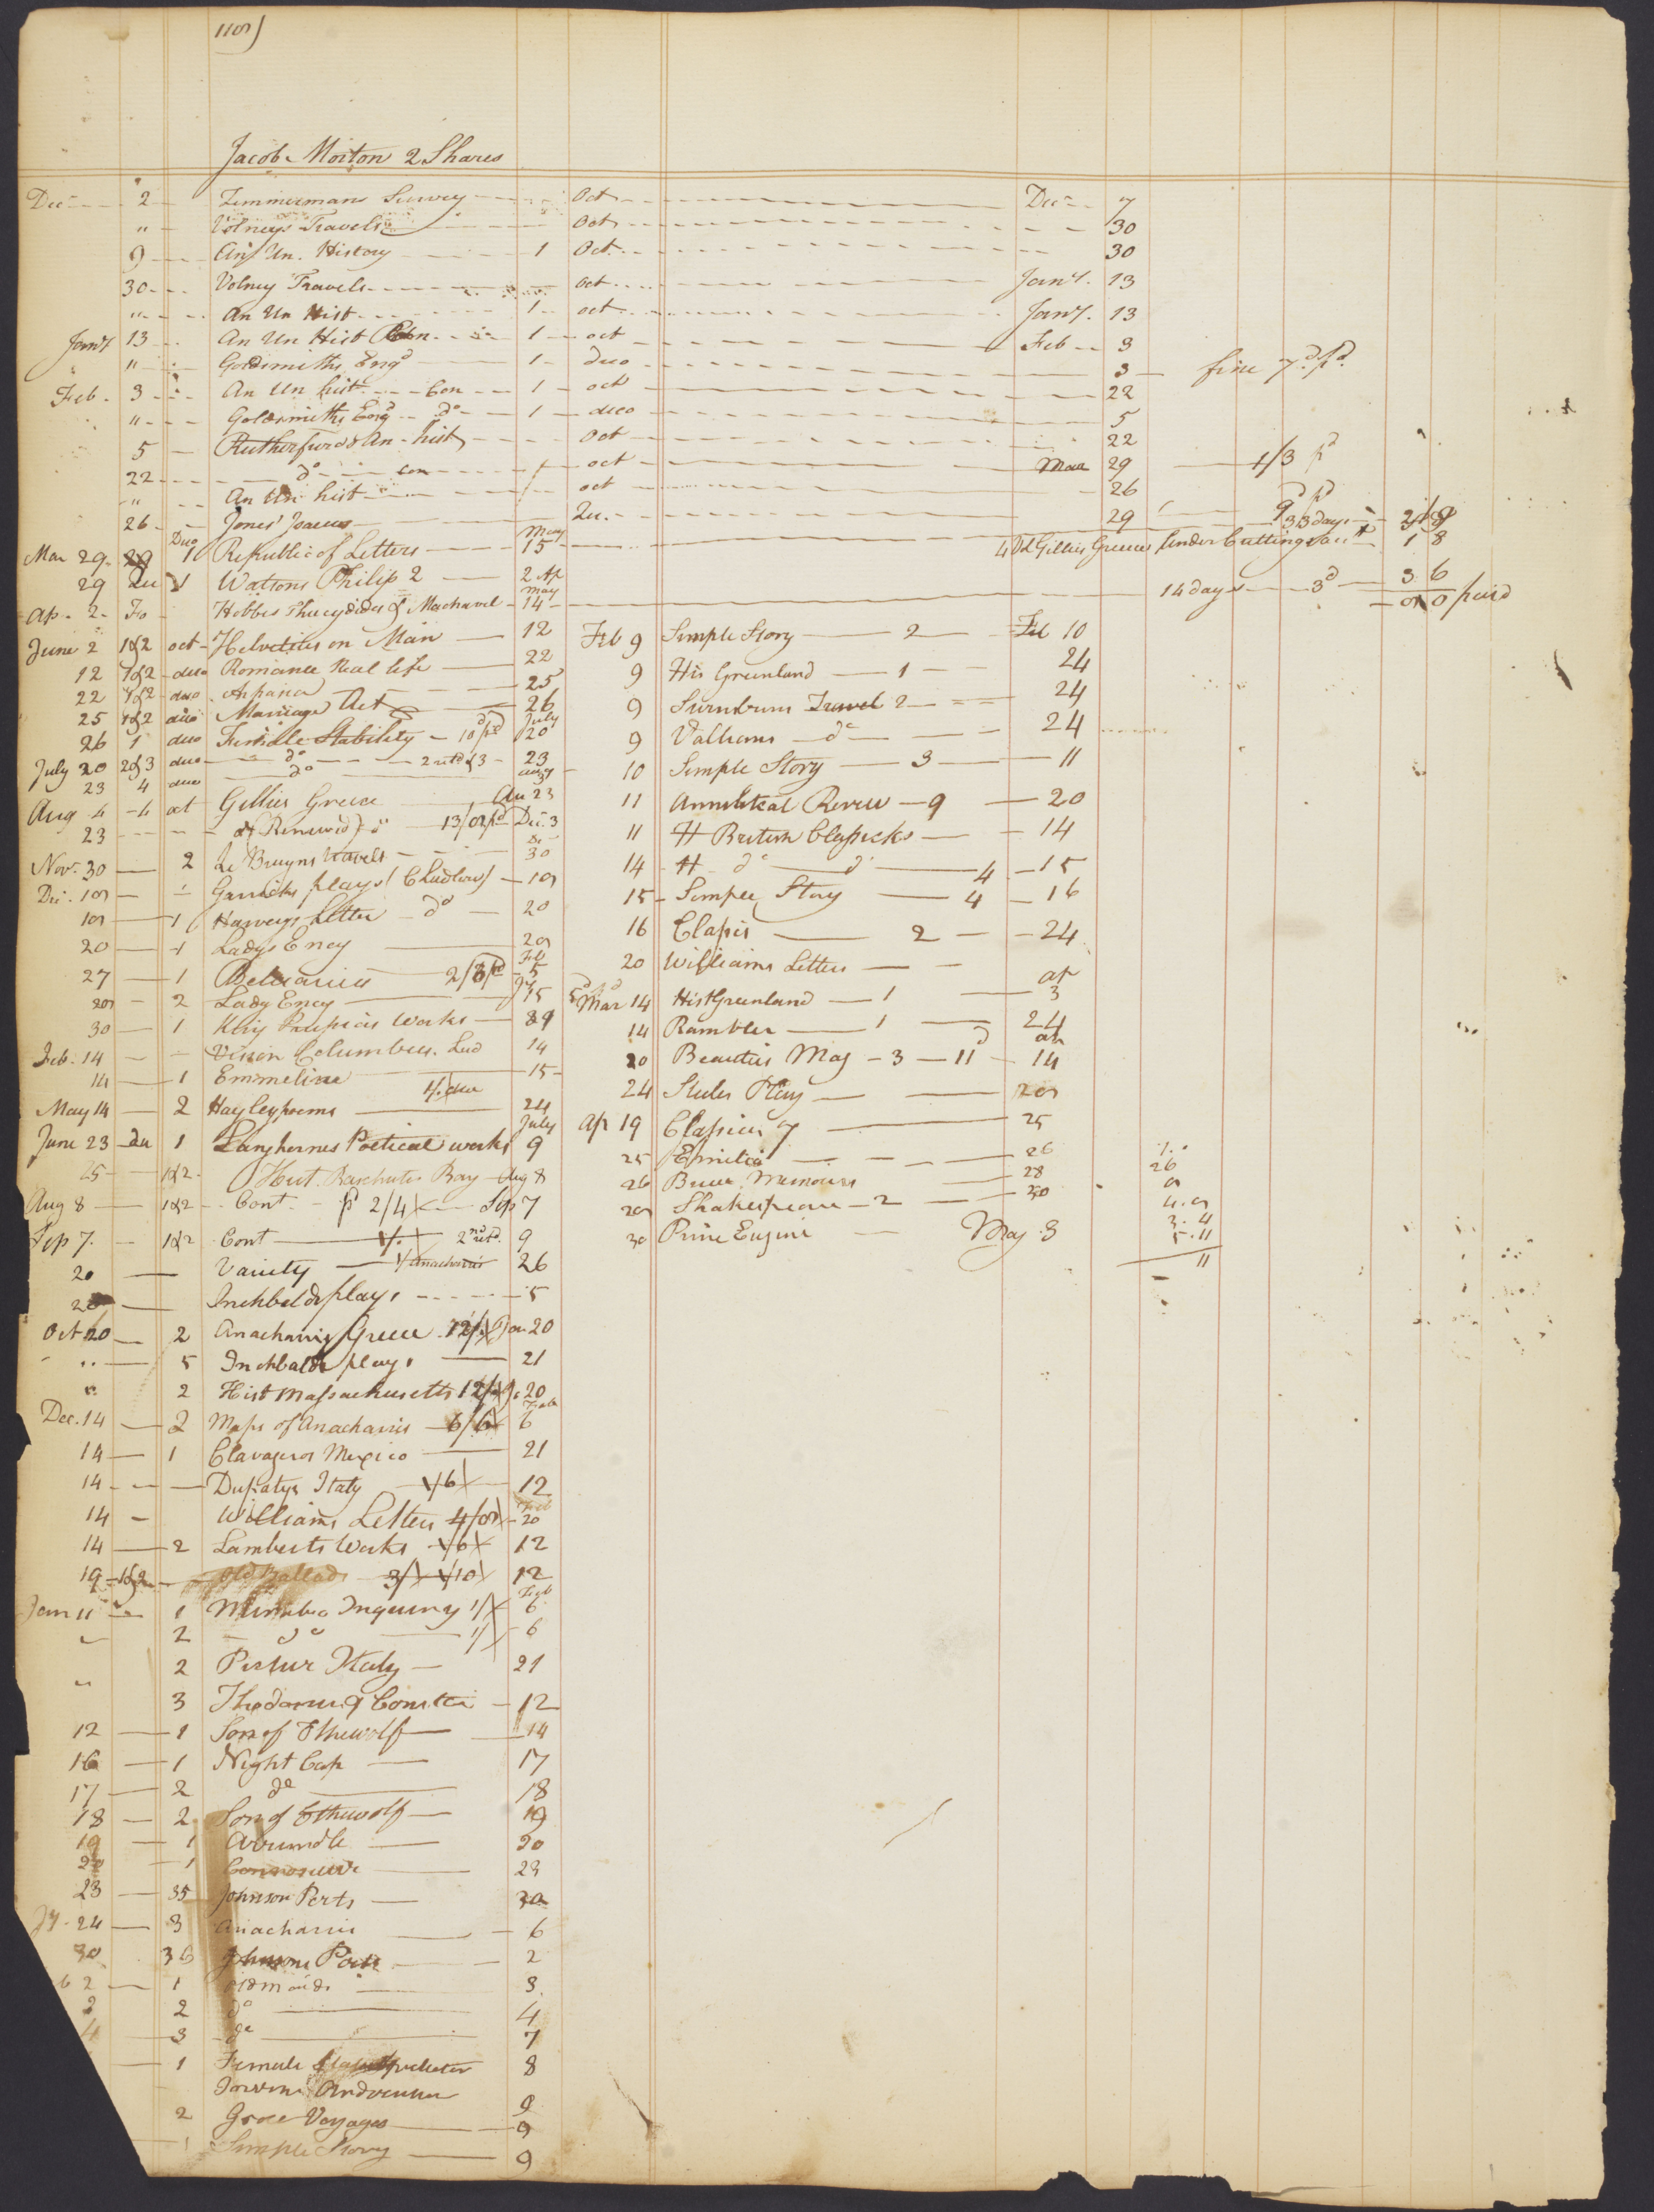 Jacob Morton 2 Shares
Dec 2 Zimmermans Survey Oct Dec 7
" Volneys Travels Oct 30
9 An Un. History 1 Oct 30
30 Volney Travels oct Jany. 13
" An Un Hist 1 oct Jany. 13
Jany 13 An Un Hist Con 1 oct Feb 3
" Goldsmiths Engd 1 duo 3 fine 7d pd
Feb. 3 An Un hist Con 1 oct 22
" Goldsmiths Engd do 1 duo 5
5 Rutherfurds An hist Oct 22
22 do con 1 oct Mar 29 1/3 pd
" An Un hist oct 26
26 Jones' Isaeus Qu. 29 9d pd
Mar 29 Duo 1 Republic of Letters May 15 33 days
4 Vol Gillies Greece under Cuttings acct 1 8
29 Qu 1 Watsons Philip 2 2 Ap
Ap. 2 Fo Hobbes Thucydides & Machavel May 14 14 days 3d 3 6
9 0 paid
June 2 1&2 oct Helvetius on Man 12
12 1&2 duo Romance Real life 22
22 1&2 duo Arpasia 25
25 1&2 duo Marriage Act 26
26 1 duo Female Stability 10d pd July 20
July 20 2&3 duo do 2 retd & 3 23
23 4 duo do
Aug 4 4 oct Gillies Greece Au 23
23 & Renewed do 13/ pd Dec. 3
Nov. 30 2 Le Bruyns travels De 30
Dec. 19 Garricks plays (C Ludlow) 19
19 1 Harveys Letter do 20
20 1 Ladys Ency 29
27 1 Belisarius 2/8 pd Feb 5
29 2 Lady Ency Jy 15
30 1 King Prussias Works 29
Feb. 14 Vision Columbus. Lud 14
14 1 Emmeline 15
May 14 2 Hayley poems 24
June 23 du 1 Langhornes Poetical works July 9
25 1&2 Hist. Massachusets Bay Aug 8
Aug 8 1&2 Cont. pd 2/4 Sep 7
Sep 7. 1&2 Cont 2nd retd. 9
20 Variety 1/ anacharsis 26
20 Inchbalds plays 5
Oct 20 2 Anacharsis Greece 12/ Jan 20
" 5 Inchbalds plays 21
" 2 Hist Massachusetts 12/ Ja 20
Dec. 14 2 Maps of Anacharsis 6/6 Feb 6
14 1 Clavageros Mexico 21
14 Dupatys Italy 1/6 12
14 Williams Letters 4/9 Feb 20
14 2 Lamberts Works 1/6 12
19 1&2 Old Ballads 3/ 1/10 12
Jan 11 1 Minstrels Inquiry 1/ Feb 6
" 2 do 1/ 6
" 2 Pictur Italy 21
3 Theodorus & Consttia 12
12 1 Son of Ethewolf 14
16 1 Night Cap 17
17 2 do 18
18 2 Son of Ethewolf 19
19 1 Arundle 20
20 1 Connosieure 23
23 35 Johnson Poets 30
Jy. 24 3 Anacharsis 6
30 36 Johnsons Poets 2
2 1 Osmonds 3
3 2 do 4
4 3 do 7
1 Female 8
9
2 Grose Voyages 9
1 Simple Story 9
Feb 9 Simple Story 2 Feb 10
9 His Greenland 1 24
9 Swinburns Travel 2 24
9 Vallians do 24
10 Simple Story 3 11
11 Annalitical Revew 9 20
11 H British Classicks 14
14 H do do 4 15
15 Simple Story 4 16
16 Classics 2 24
20 Williams Letters
Mar 14 Hist Greenland 1 ap 3
14 Rambler 1 24
20 Beauties Mag 3 11d ap 14
24 Steeles Play 29
Ap 19 Classicks 7 25
25 Emilia 26
26 Bruce Memoirs 28
29 Shakespeare 2 30
30 Prince Eugene May 3
26
9
4.9
3.4
5.11
11